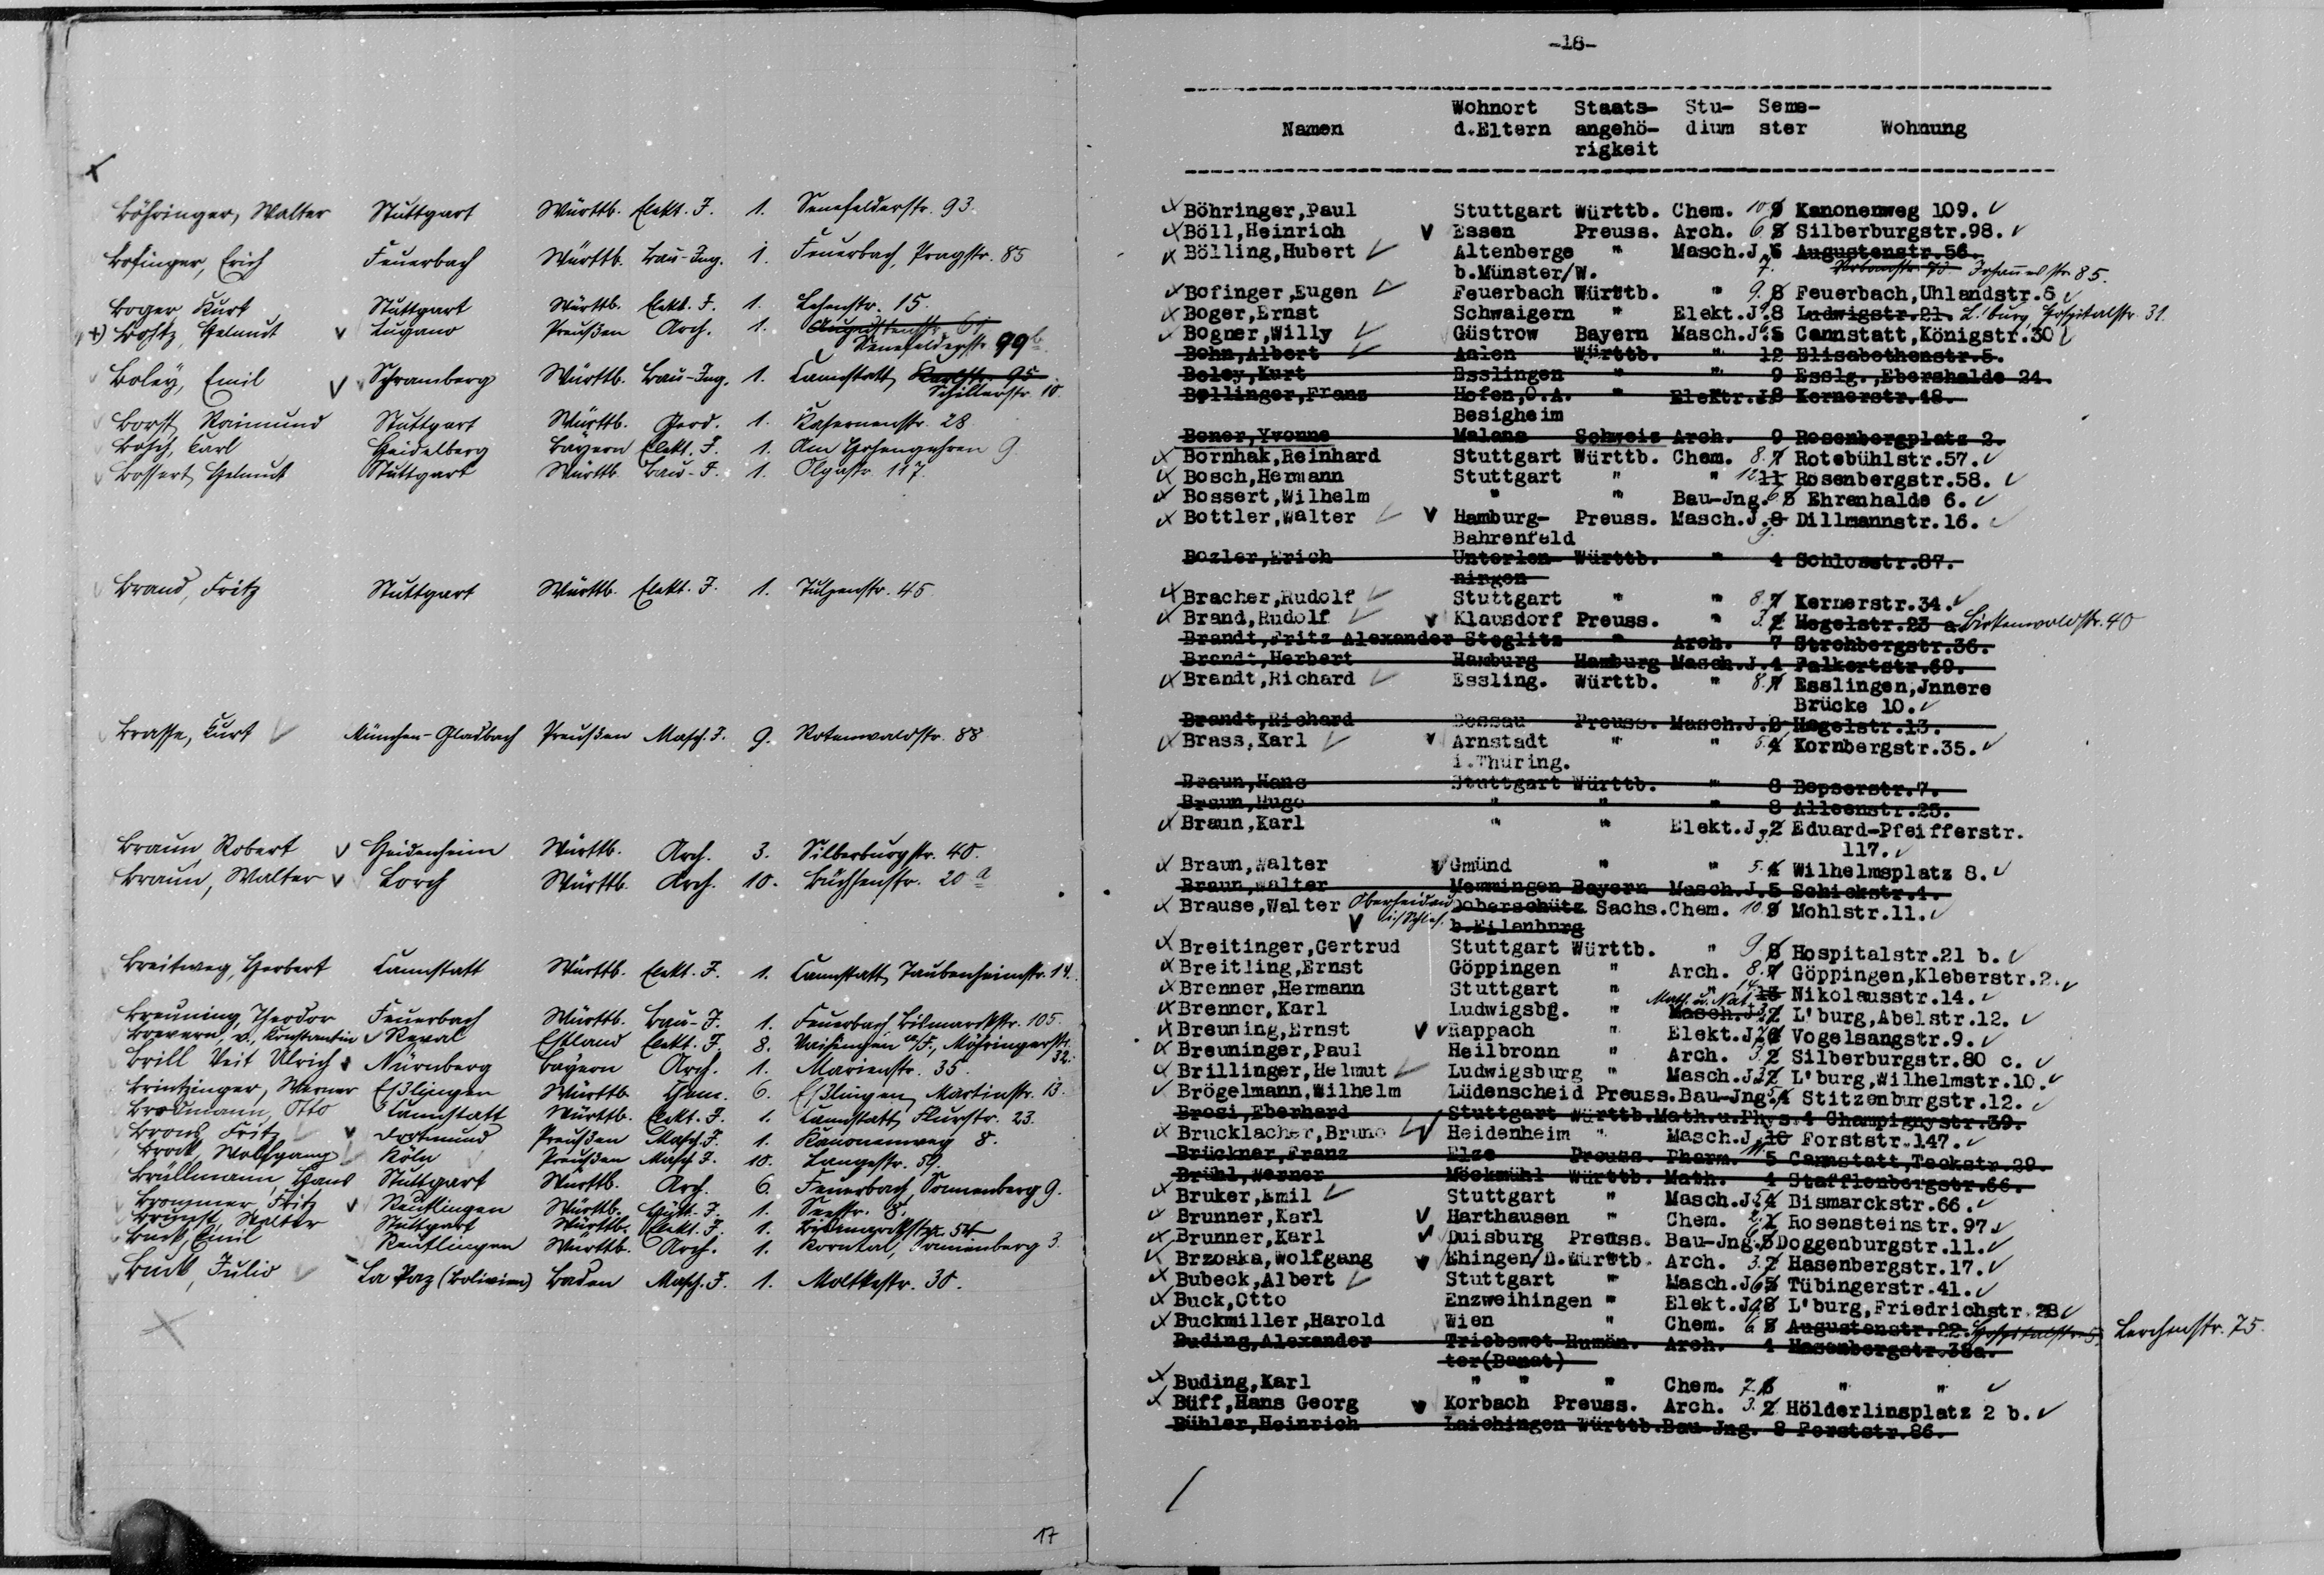 Böhringer, Walter Stuttgart Württb. Elekt. J. 1. Senefelderstr. 93.
Bofinger, Erich Feuerbach Württb. Bau-Ing. 1. Feuerbach, Pragstr. 85
Boger Kurt Stuttgart Württb. Elekt. J. 1. Lehenstr. 15.
+) Helmut Lugano Preußen Arch. 1. Augustenstr.
Senefelderstr. 99b.
Boley, Emil Schramberg Württb. Bau-Ing. 1. Cannstatt Karlstr. 95
Schillerstr. 10.
Borst, Raimund Stuttgart Württb. Geod. 1. Kasernenstr. 28
Bosch, Carl Heidelberg Bayern Elekt. J. 1. Am Hohengehren 9.
Bossert, Helmut Stuttgart Württb. Bau-J. 1. Olgastr. 117.
Brand, Fritz Stuttgart Württb. Elekt. J. 1. Tulpenstr. 45
Brasse, Curt München-Gladbach Preußen Masch. J. 9. Rotenwaldstr. 88
Braun, Robert Heidenheim Württb. Arch. 3. Silberburgstr. 40.
Braun, Walter Lorch Württb. Arch. 10. Büchsenstr. 20 a
Breitweg, Herbert Cannstatt Württb. Elekt. J. 1. Cannstatt, Taubenheimstr. 14.
Breuning, Theodor Feuerbach Württb. Bau-J. 1. Feuerbach, Bismarckstr. 105.
Brevern, v., Konstantin Reval Estland Elekt. J. 8. Vaihingen a/F., Möhringerstr.
32.
Brill Veit Ulrich Nürnberg Bayern Arch. 1. Marienstr. 35.
Brintzinger, Werner Eßlingen Württb. Chem. 6. Eßlingen, Martinstr. 13.
Brodmann, Otto Cannstatt Württb. Elekt. J. 1. Cannstatt, Flurstr. 23.
Fritz Dortmund Preußen Masch. J. 1. Kanonenweg 8.
Brock, Wolfgang Köln Preußen Masch. J. 10. Langestr. 59.
Brüllmann, Hans Stuttgart Württb. Arch. 6. Feuerbach, Sonnenberg 9.
Brommer, Fritz Reutlingen Württb. Elekt. J. 1. Seestr. 8.
Walter Stuttgart Württb. Elekt. J. 1. Bismarckstr. 54
Buck, Emil Reutlingen Württb. Arch. 1. Korntal, Sonnenberg 3.
Buck, Julio La Paz (Bolivien) Baden Masch. J. 1. Moltkestr. 30.
17
-18-
Wohnort Staats- Stu- Seme-
Namen d.Eltern angehö- dium ster Wohnung
rigkeit
Böhringer,Paul Stuttgart Württb. Chem. 10. 9 Kanonenweg 109.
Böll,Heinrich Essen Preuss. Arch. 6 5 Silberburgstr.98.
Bölling,Hubert Altenberge " Masch.J. 6 Augustenstr.56.
b.Münster/W. 7. Johannesstr. 85.
Bofinger,Eugen Feuerbach Württb. " 9. 8 Feuerbach,Uhlandstr.6
Boger,Ernst Schwaigern " Elekt.J. 8 Ludwigstr.21. L'burg Hospitalstr. 31.
Bogner,Willy Güstrow Bayern Masch.J. 5 Cannstatt,Königstr.30
Bohn,Albert Aalen Württb. " 12 Elisabethenstr.5.
Boley,Kurt Esslingen " " 9 Esslg.,Ebershalde 24.
Bollinger,Franz Hofen,O.A. " Elektr.J. 8 Kernerstr.48.
Besigheim
Boner,Yvonne Malans Schweiz Arch. 9 Rosenbergplatz 2.
Bornhak,Reinhard Stuttgart Württb. Chem. 8. 7 Rotebühlstr.57.
Bosch,Hermann Stuttgart " " 12. 11 Rosenbergstr.58.
Bossert,Wilhelm " " Bau-Jng. 6 5 Ehrenhalde 6.
Bottler,Walter Hamburg- Preuss. Masch.J. 8 Dillmannstr.16.
Bahrenfeld 9.
Bozler,Erich Unterlen- Württb. " 4 Schlosstr.87.
ningen
Bracher,Rudolf Stuttgart " " 8. 7 Kernerstr.34.
Brand,Rudolf Klausdorf Preuss. " 3. 2 Hegelstr.23 a Birkenwaldstr. 40
Brandt,Fritz Alexander Steglitz " Arch. 7 Strohbergstr.36.
Brandt,Herbert Hamburg Hamburg Masch.J. 4 Falkertstr.69.
Brandt,Richard Essling. Württb. " 8. 7 Esslingen,Jnnere
Brücke 10.
Brandt,Richard Dessau Preuss. Masch.J. 8 Hegelstr.13.
Brass,Karl Arnstadt " " 5. 4 Kornbergstr.35.
i.Thüring.
Braun,Hans Stuttgart Württb. " 8 Bopserstr.7.
Braun,Hugo " " " 8 Alleenstr.25.
Braun,Karl " " Elekt.J. 3. 2 Eduard-Pfeifferstr.
117.
Braun,Walter Gmünd " " 5. 4 Wilhelmsplatz 8.
Braun,Walter Memmingen Bayern Masch.J. 5 Schickstr.4.
Brause,Walter Oberheidau Doberschütz Sachs. Chem. 10. 9 Mohlstr.11.
i/Schles. b.Eilenburg
Breitinger,Gertrud Stuttgart Württb. " 9. 8 Hospitalstr.21 b.
Breitling,Ernst Göppingen " Arch. 8. 7 Göppingen,Kleberstr.2.
Brenner,Hermann Stuttgart " " 14. 13 Nikolausstr.14.
Brenner,Karl Ludwigsbg. " Math. u. Nat. Masch.J. 3. 2 L'burg,Abelstr.12.
Breuning,Ernst Rappach " Elekt.J. 7. 6 Vogelsangstr.9.
Breuninger,Paul Heilbronn " Arch. 3. 2 Silberburgstr.80 c.
Brillinger,Helmut Ludwigsburg " Masch.J. 3. 2 L'burg,Wilhelmstr.10.
Brögelmann,Wilhelm Lüdenscheid Preuss. Bau-Jng. 5. 4 Stitzenburgstr.12.
Brosi,Eberhard Stuttgart Württb.Math.u.Phys.4 Champignystr.39.
Brucklacher,Bruno Heidenheim " Masch.J. 10 Forststr.147.
Brückner,Franz Elze Preuss. Pharm. 5 Cannstatt,Teckstr.29.
Brühl,Werner Möckmühl Württb. Math. 4 Stafflenbergstr.66.
Bruker,Emil Stuttgart " Masch.J. 5. 4 Bismarckstr.66.
Brunner,Karl Harthausen " Chem. 2. 1 Rosensteinstr.97
Brunner,Karl Duisburg Preuss. Bau-Jng. 6 5 Doggenburgstr.11.
Brzoska,Wolfgang Ehingen/D.Württb. Arch. 3. 2 Hasenbergstr.17.
Bubeck,Albert Stuttgart " Masch.J. 6 5 Tübingerstr.41.
Buck,Otto Enzweihingen " Elekt.J. 9. 8 L'burg,Friedrichstr.28
Buckmiller,Harold Wien " Chem. 6 5 Augustenstr.22. Hospitalstr. 5, Lerchenstr. 75.
Buding,Alexander Triebswet- Rumän. Arch. 4 Hasenbergstr.38a.
ter(Banat)
Buding,Karl " " " Chem. 7. 6 " "
Büff,Hans Georg Korbach Preuss. Arch. 3. 2 Hölderlinsplatz 2 b.
Bühler,Heinrich Laichingen Württb.Bau-Jng. 8 Forststr.86.